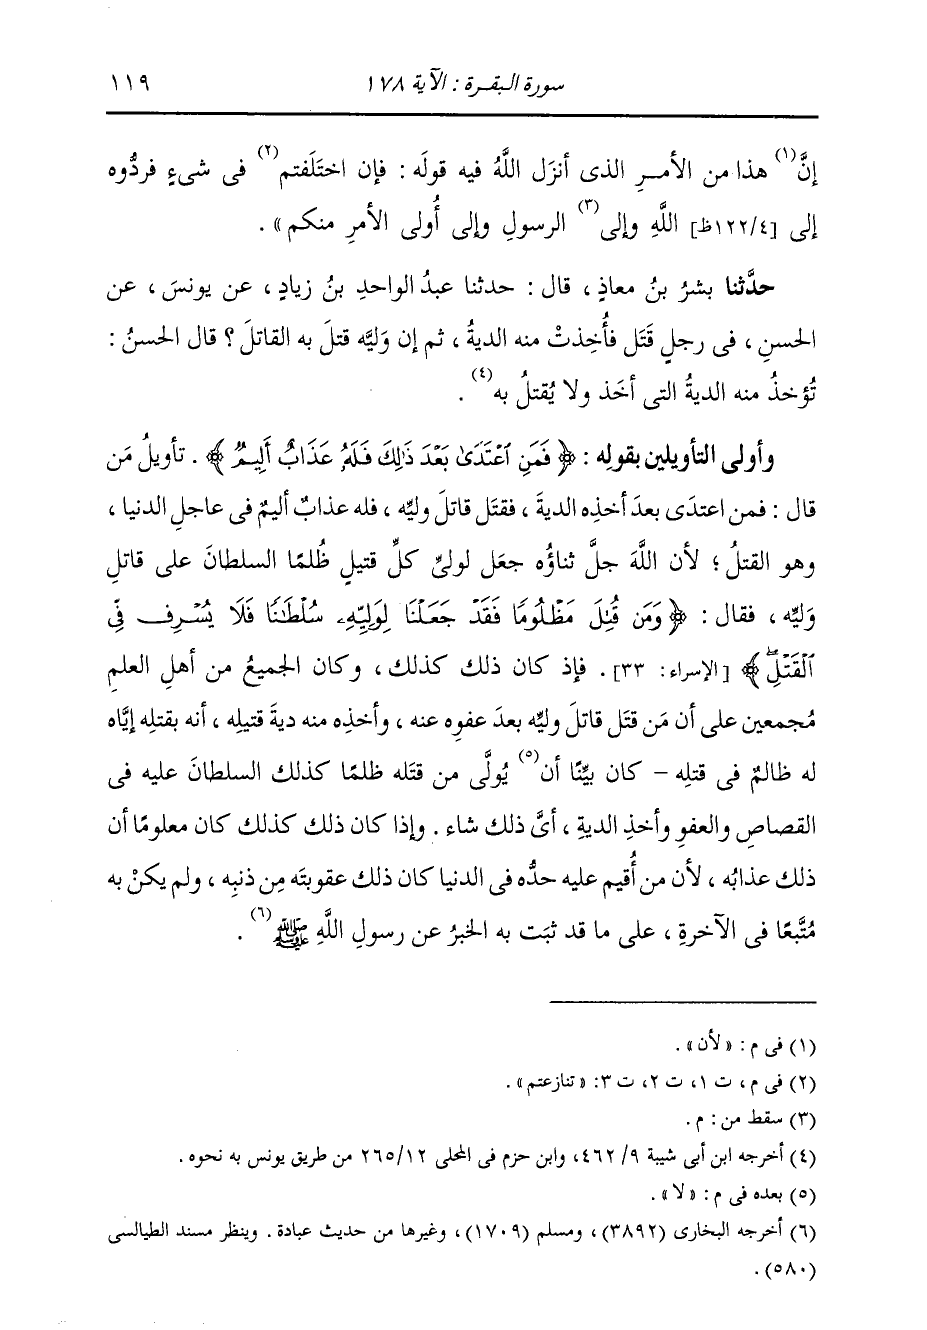 سورة البقرة : الآية ١٧٨ ١١٩
إنَّ(١) هذا من الأمرِ الذى أنزَل اللَّهُ فيه قولَه : فإن اختَلَفتم(٢) فى شىءٍ فردُّوه
إلى [٤/١٢٢ظ] اللَّهِ وإلى(٣) الرسولِ وإلى أُولى الأمرِ منكم» .
حدَّثنا بشرُ بنُ معاذٍ ، قال : حدثنا عبدُ الواحدِ بنُ زيادٍ ، عن يونسَ ، عن
الحسنِ ، فى رجلٍ قَتَل فأُخِذتْ منه الديةُ ، ثم إن وَليَّه قتَل به القاتلَ ؟ قال الحسنُ :
تُؤخذُ منه الديةُ التى أخَذ ولا يُقتلُ به(٤) .
وأولى التأويلين بقولِه : ﴿ فَمَنِ ٱعْتَدَىٰ بَعْدَ ذَٰلِكَ فَلَهُۥ عَذَابٌ أَلِيمٌ ﴾ . تأويلُ مَن
قال : فمن اعتدَى بعدَ أخذِه الديةَ ، فقتَل قاتلَ وليِّه ، فله عذابٌ أليمٌ فى عاجلِ الدنيا ،
وهو القتلُ ؛ لأن اللَّهَ جلَّ ثناؤُه جعَل لولىِّ كلِّ قتيلٍ ظُلمًا السلطانَ على قاتلِ
وَليِّه ، فقال : ﴿ وَمَن قُتِلَ مَظْلُومًا فَقَدْ جَعَلْنَا لِوَلِيِّهِۦ سُلْطَٰنًا فَلَا يُسْرِف فِّى
ٱلْقَتْلِۖ ﴾ [الإسراء: ٣٣] . فإذ كان ذلك كذلك ، وكان الجميعُ من أهلِ العلمِ
مُجمعين على أن مَن قتَل قاتلَ وليِّه بعدَ عفوِه عنه ، وأخذِه منه ديةَ قتيلِه ، أنه بقتلِه إيَّاه
له ظالمٌ فى قتلِه – كان بيِّنًا أن(٥) يُولَّى من قتَله ظلمًا كذلك السلطانَ عليه فى
القصاصِ والعفوِ وأخذِ الديةِ ، أىَّ ذلك شاء . وإذا كان ذلك كذلك كان معلومًا أن
ذلك عذابُه ، لأن من أُقيم عليه حدُّه فى الدنيا كان ذلك عقوبتَه مِن ذنبِه ، ولم يكنْ به
مُتَّبعًا فى الآخرةِ ، على ما قد ثبَت به الخبرُ عن رسولِ اللَّهِ ﷺ(٦) .
(١) فى م : «لأن» .
(٢) فى م، ت ١، ت ٢، ت ٣: «تنازعتم» .
(٣) سقط من : م .
(٤) أخرجه ابن أبى شيبة ٩/ ٤٦٢، وابن حزم فى المحلى ١٢/ ٢٦٥ من طريق يونس به نحوه .
(٥) بعده فى م : «لا» .
(٦) أخرجه البخارى (٣٨٩٢)، ومسلم (١٧٠٩)، وغيرها من حديث عبادة . وينظر مسند الطيالسى
(٥٨٠) .